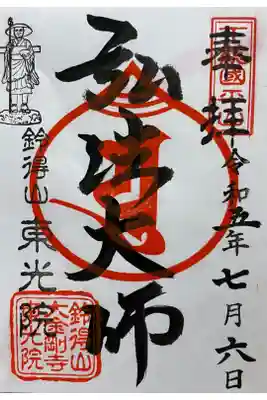 奉拝
令和五年七月六日
弘法大師
鈴得山 東光院
鈴得山
大金剛寺
東光院